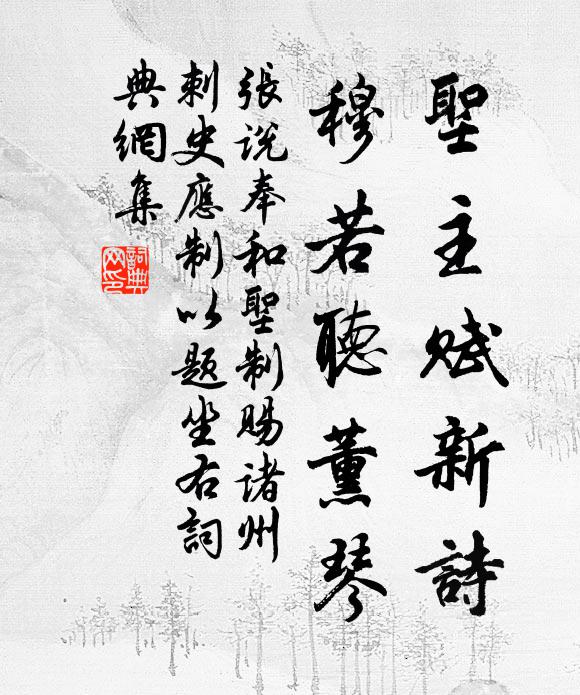 聖主賦新詩
穆若聽薰琴
張說奉和聖制賜諸州
刺史應制以題坐右詞
典網集
詞典網印